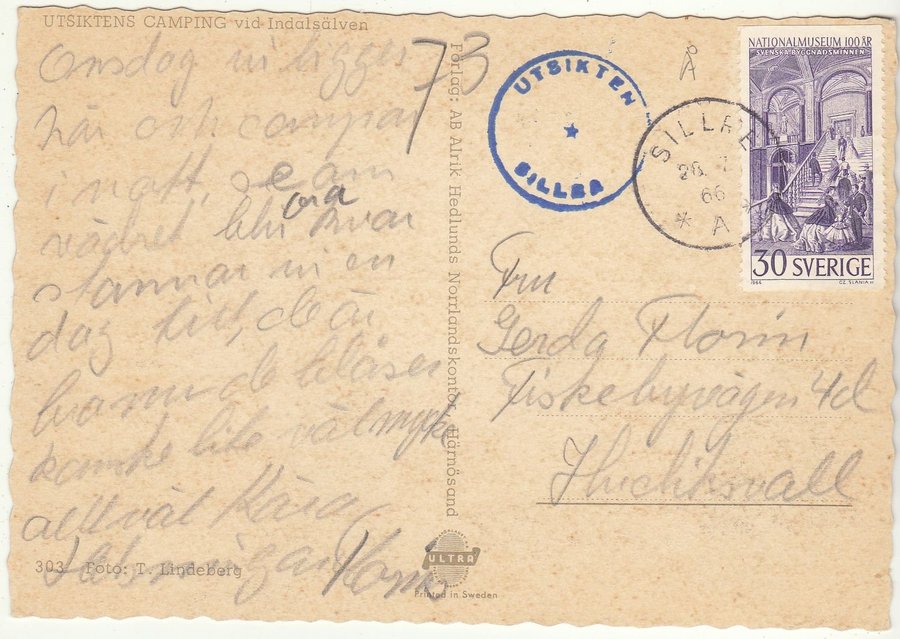 UTSIKTENS CAMPING vid Indalsälven
onsdag vi ligger
här och campar
i natt, se om
vädret blir bra
kvar
stannar vi en
dag till, de är
varmt de blåser
kanske lite väl mycke
allt väl Kära
303 Foto: T. Lindeberg
73
Förlag: AB Alrik Hedlunds Norrlandskontor, Härnösand
ULTRA
Printed in Sweden
UTSIKTEN
SILLRE
Å
SILLRE
26 7
66
* A *
NATIONALMUSEUM 100 ÅR
SVENSKA BYGGNADSMINNEN
30 SVERIGE
1966 CZ. SLANIA SC
Fru
Gerda Florin
Fiskebyvägen 4d
Hudiksvall